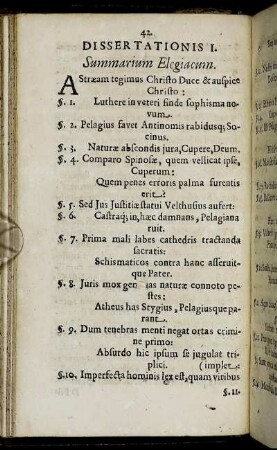 42
DISSERTATIONIS I.
Summarium Elegiacum.
AStræam tegimus Christo Duce & auspice
Christo:
§. 1. Luthere in veteri finde sophisma no-
vum.
§. 2. Pelagius favet Antinomis rabidusq; So-
cinus.
§. 3. Naturæ abscondis jura, Cupere, Deum.
§. 4. Comparo Spinosæ, quem vellicat ipse,
Cuperum:
Quem penes erroris palma furentis
erit?
§. 5. Sed Jus Justitiæ statui Velthusius aufert:
§. 6. Castraq; in, hæc damnans, Pelagiana
ruit.
§. 7. Prima mali labes cathedris tractanda
sacratis:
Schismaticos contra hanc asseruit-
que Pater.
§. 8. Juris mox gen ias naturæ connoto pe-
stes:
Atheus has Stygius, Pelagiusque pa-
rant.
§. 9. Dum tenebras menti negat ortas crimi-
ne primo:
Absurdo hic ipsum se jugulat tri-
plici. (implet:
§. 10. Imperfecta hominis lex est, quam viribus
§. 11.